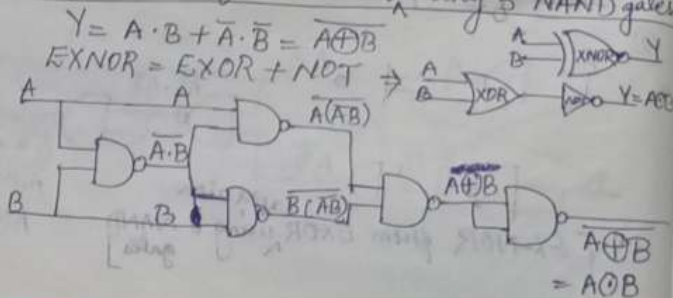 5 NAND gates
Y = A · B + A̅ · B̅ = \overline{A⊕B}
EXNOR = EXOR + NOT →
A
B
XNOR
Y
A
B
XOR
NOT
A
A
\overline{A(\overline{AB})}
\overline{A·B}
B
B
\overline{B(\overline{AB})}
\overline{A⊕B}
\overline{A⊕B}
= A⊙B